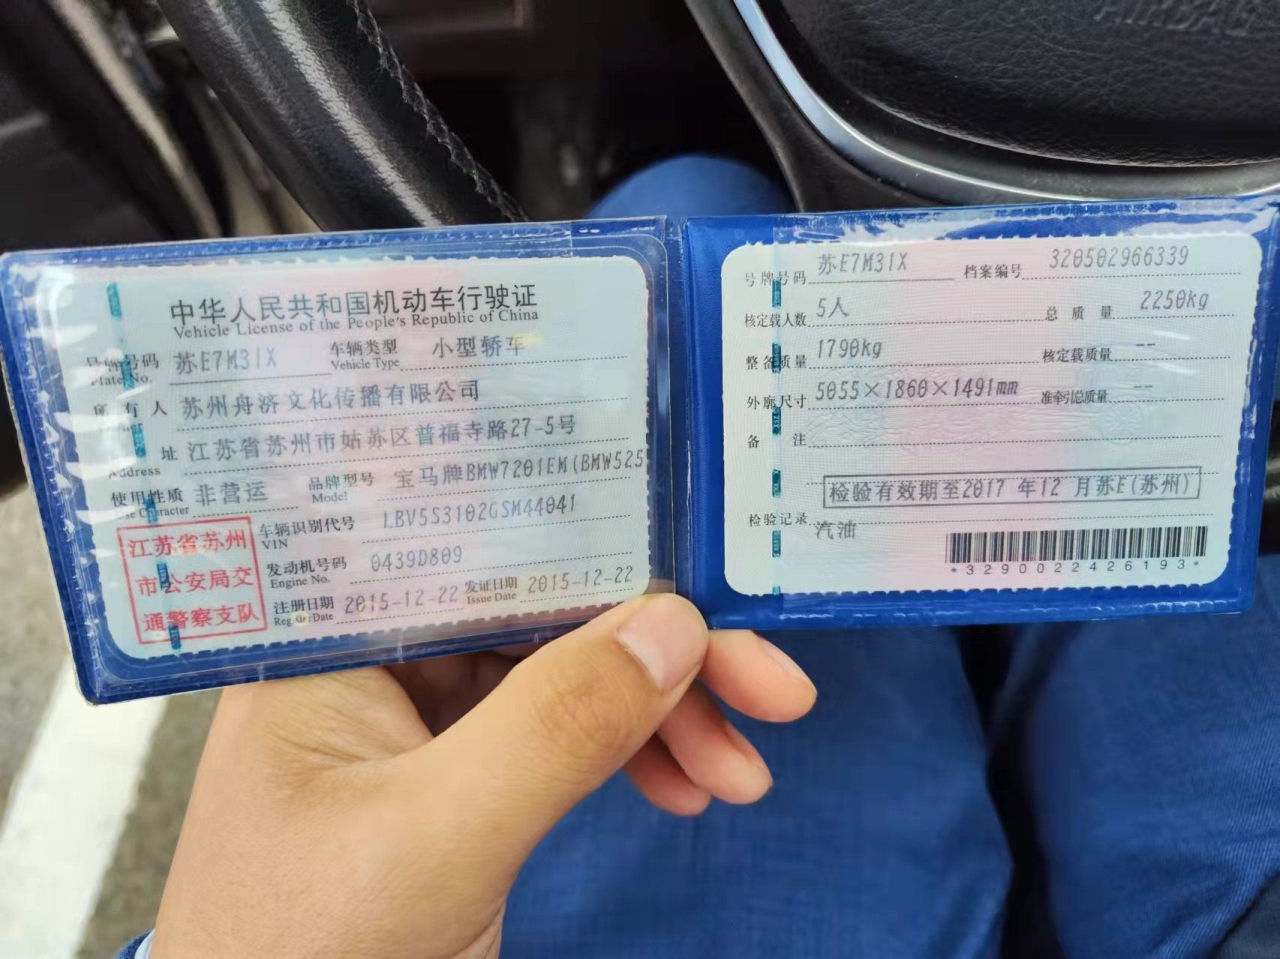 AIRBAG
中华人民共和国机动车行驶证
Vehicle License of the People's Republic of China
号牌号码 苏E7M31X 车辆类型 小型轿车
Plate No. Vehicle Type
所有人 苏州舟济文化传播有限公司
址 江苏省苏州市姑苏区普福寺路27-5号
Address
使用性质 非营运 品牌型号 宝马牌BMW7201EM(BMW525
Use Character Model
江苏省苏州
市公安局交
通警察支队
车辆识别代号 LBV5S3102GSM44041
VIN
发动机号码 0439D809
Engine No.
注册日期 2015-12-22 发证日期 2015-12-22
Register Date Issue Date
号牌号码 苏E7M31X 档案编号 320502966339
核定载人数 5人 总质量 2250kg
整备质量 1790kg 核定载质量 --
外廓尺寸 5055×1860×1491mm 准牵引总质量 --
备注
检验有效期至2017 年12 月苏E(苏州)
检验记录 汽油
*3290022426193*